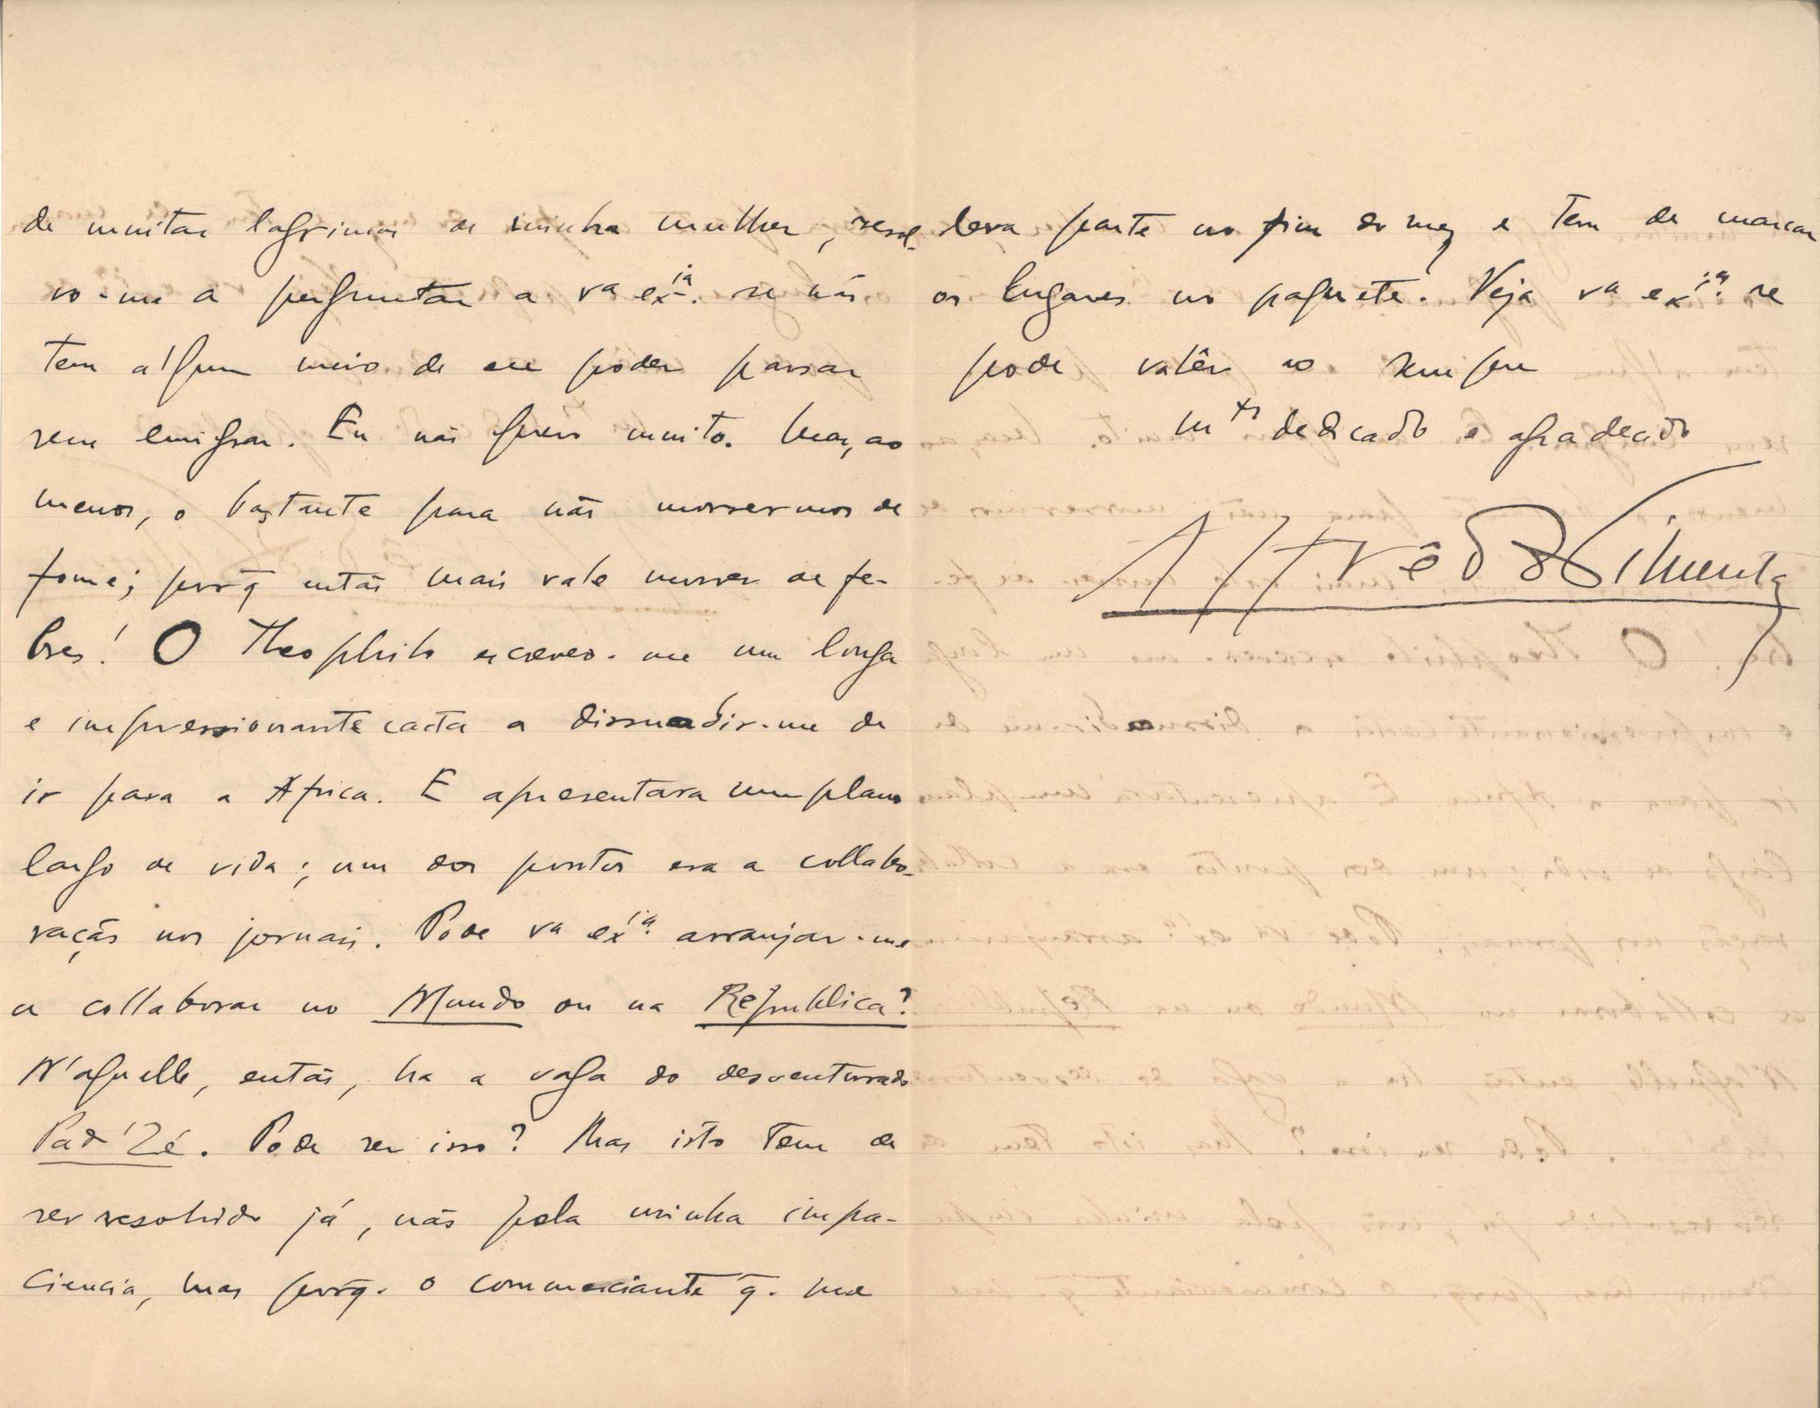 de muitas lagrimas de minha mulher, resol-
vo-me a perguntar a vª exᶦᵃ. se não
tem algum meio de eu poder passar
sem emigrar. Eu não quero muito. Mas, ao
menos, o bastante para não morrermos de
fome; porq̃ então mais vale morrer de fe-
bres! O Theophilo escreveo-me um longa
e impressionante carta a dissuadir-me de
ir para a Africa. E apresentava um plano
largo de vida; um dos pontos era a collabo-
ração nos jornais. Pode vª exᶦᵃ. arranjar-me
a collaborar no Mundo ou na Republica?
N'aquelle, então, ha a vaga do desventurado
Pad'Zé. Pode ser isso? Mas isto tem de
ser resolvido já, não pela minha impa-
ciencia, mas porq̃. o commerciante q̃. me
leva parte no fim do mez e tem de marcar
os lugares no paquete. Veja vª exᶦᵃ. se
pode valêr ao sempre
mᵗᵒ dedicado e agradecido
Alfrêdo Pimenta